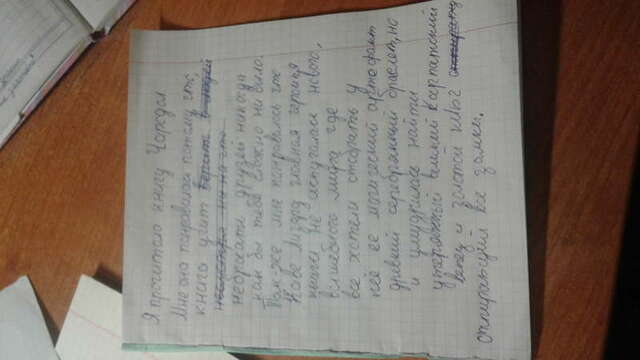 Я прочитала книгу Чародол
Мне она понравилась потому что,
книга учит верить в людей
несмотря ни на что
небросать друзей никогда
как бы тебе сложно ни было.
Так-же мне понравилось что
Каве Лизард главная героиня
книги не испугалась нового,
волшебного мира где
все хотели отобрать у
неё ее магический артофакт
дривний серебрянный браслет, но
и умудрилась найти
утерянный великий Карпатский
венец и золотой ключ
отпирающий все замки.